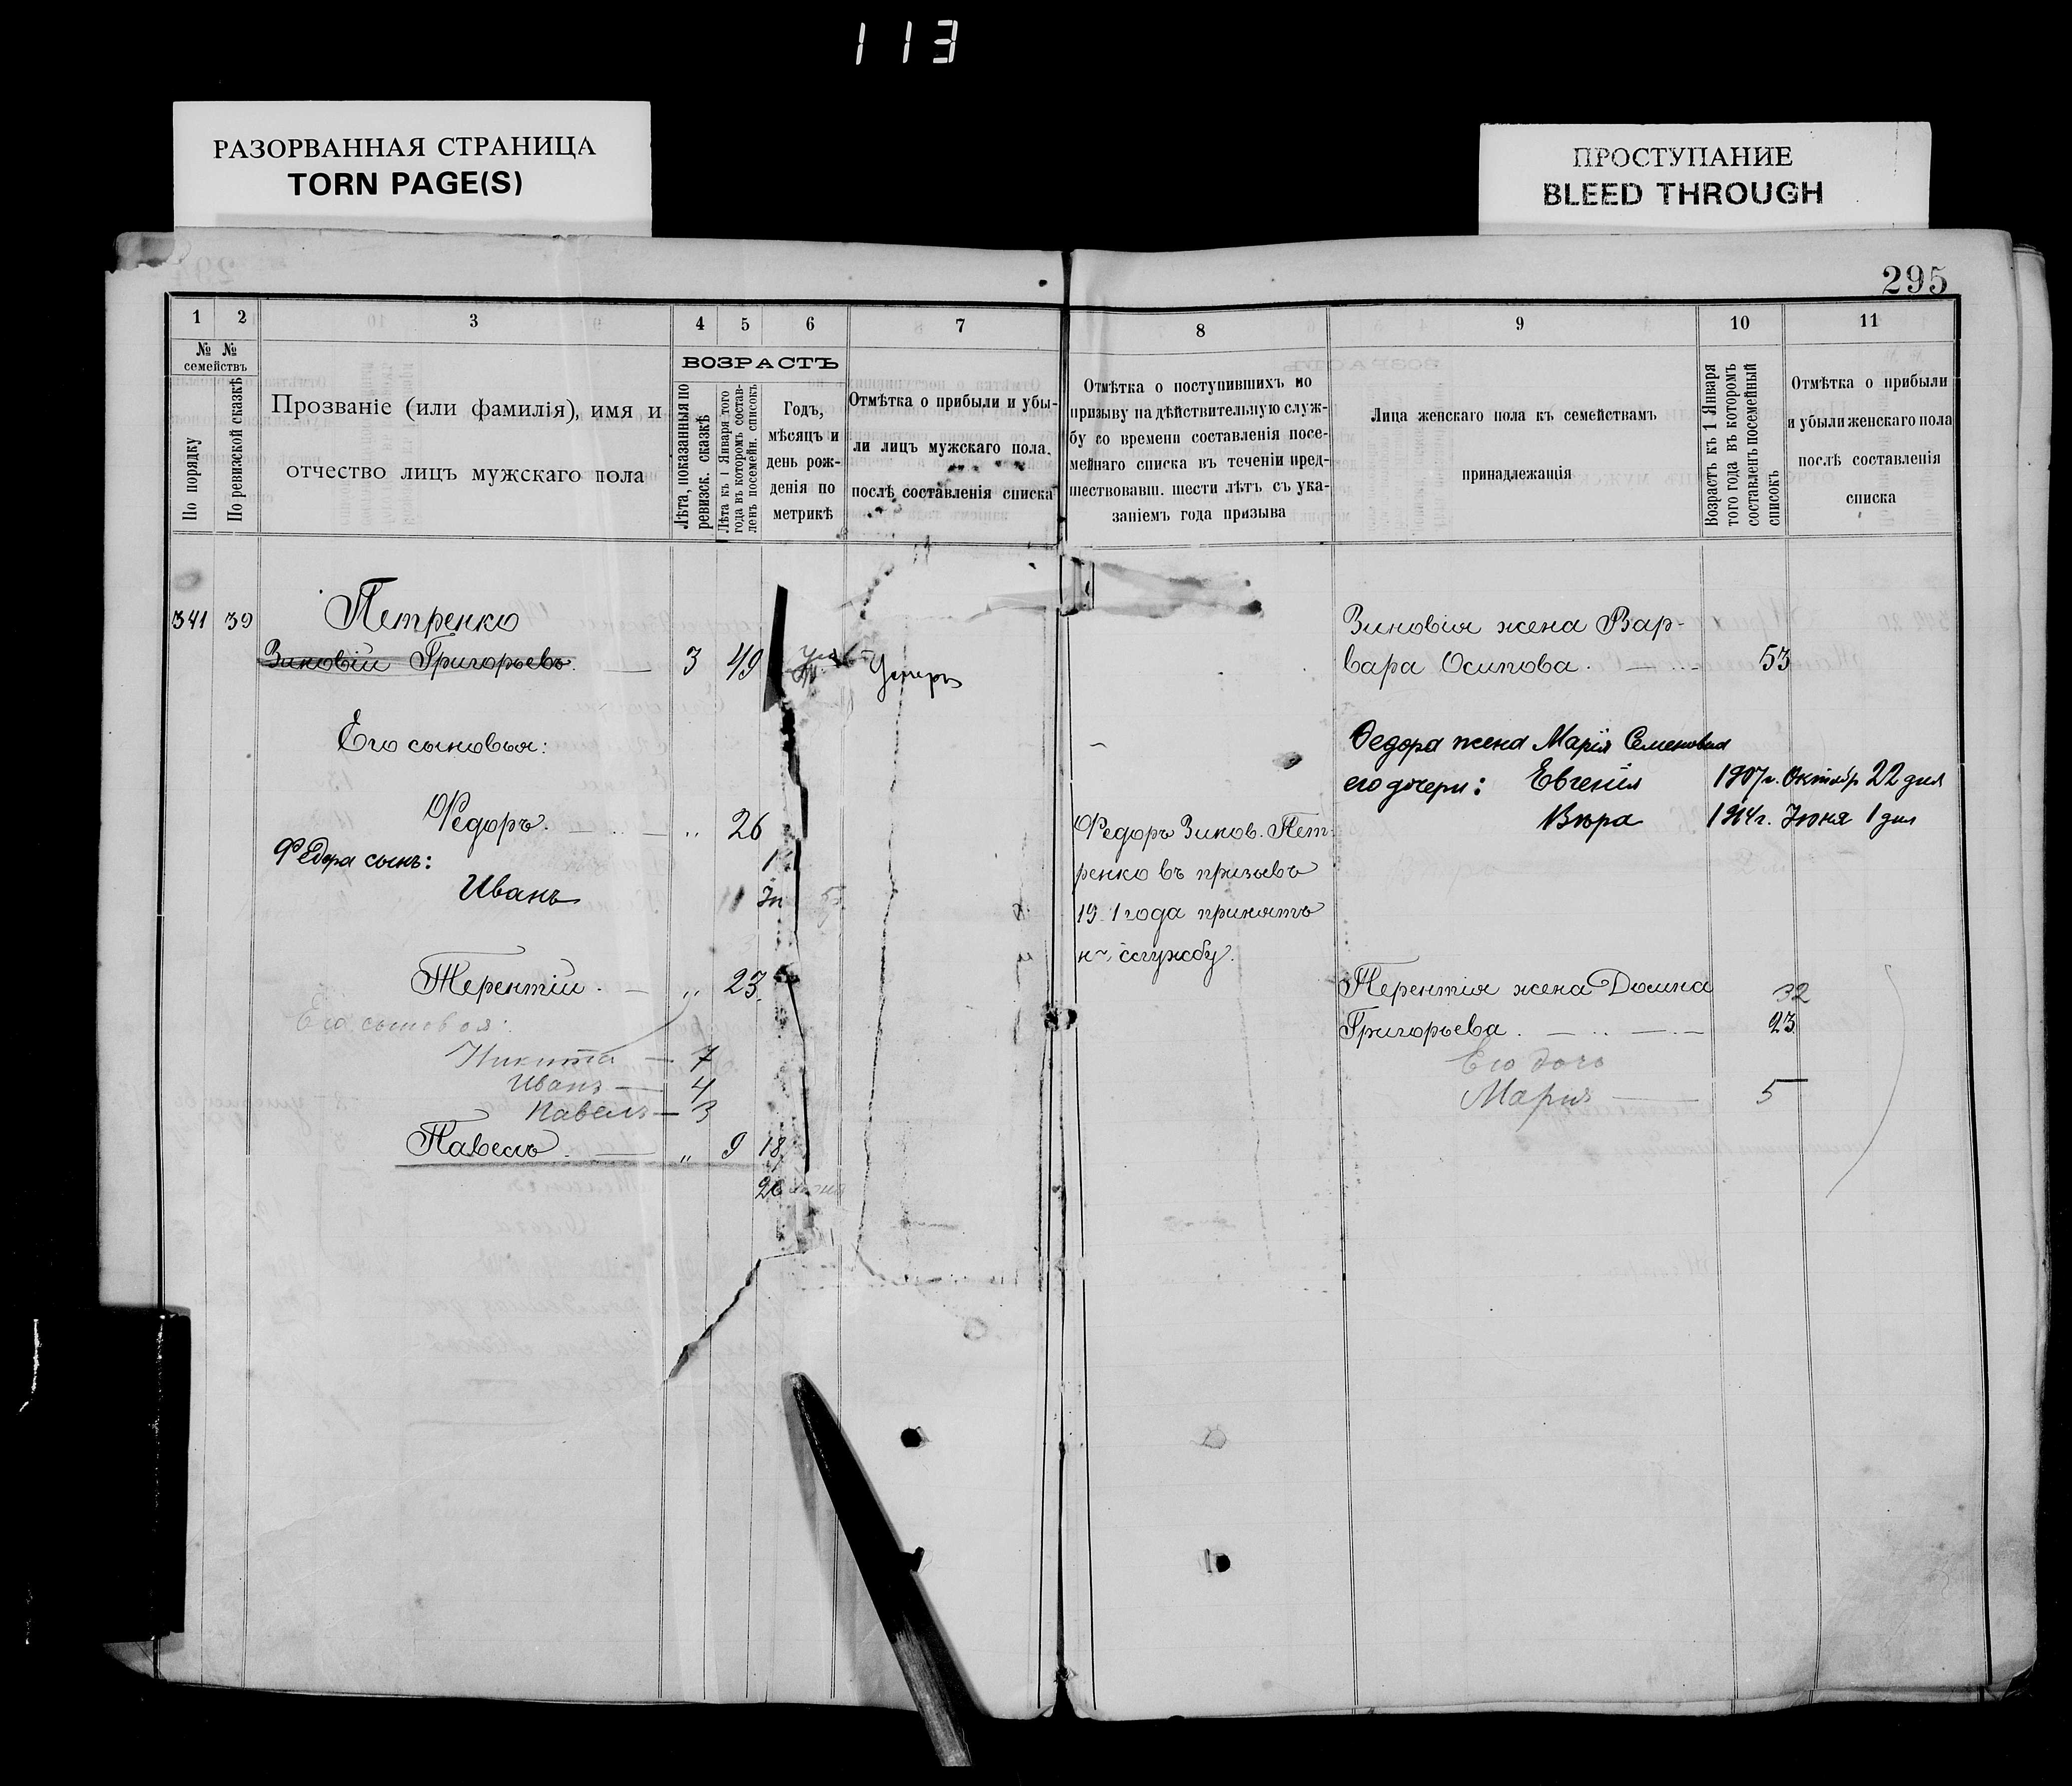 113
РАЗОРВАННАЯ СТРАНИЦА
TORN PAGE(S)
ПРОСТУПАНИЕ
BLEED THROUGH
295
1
2
3
4
5
6
7
№ № семействъ
По порядку
По ревизской сказкѣ
Прозваніе (или фамилія), имя и
отчество лицъ мужскаго пола
ВОЗРАСТЪ
Лѣта, показанныя по
ревизск. сказкѣ
Лѣта къ 1 Января того
года въ которомъ состав-
ленъ посемейн. списокъ
Годъ,
мѣсяцъ и
день рож-
денія по
метрикѣ
Отмѣтка о прибыли и убы-
ли лицъ мужскаго пола,
послѣ составленія списка
341 39 Петренко
Зиновій Григорьевъ. 3 49 Умеръ
Его сыновья:
Федоръ. „ 26
Федора сынъ:
Иванъ
Терентій. „ 23
Его сыновья:
Никита — 7
Иванъ — 4
Павелъ — 3
Павелъ. — „ 9 18
26
8
9
10
11
Отмѣтка о поступившихъ по
призыву на дѣйствительную служ-
бу со времени составленія посе-
мейнаго списка въ теченіи пред-
шествовавш. шести лѣтъ съ ука-
заніемъ года призыва
Лица женскаго пола къ семействамъ
принадлежащія
Возрастъ къ 1 Января
того года въ которомъ
составленъ посемейный
списокъ
Отмѣтка о прибыли
и убыли женскаго пола
послѣ составленія
списка
Зиновія жена Вар-
вара Осипова. 53
Федора жена Марія Семеновна
его дочери: Евгенія 1907г. Октябр 22 дня
Вѣра 1914г. Іюня 1 дня
Федоръ Зинов. Пет-
ренко въ призывъ
19 1 года принятъ
службу.
Терентія жена Домна 32
Григорьева. 23
Его дочь
Марія — 5